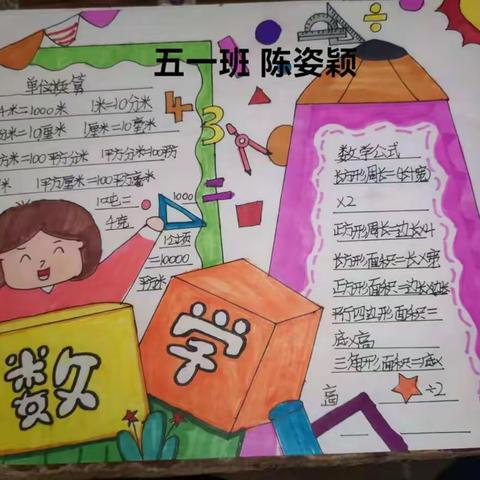 五一班 陈姿颖
单位换算
千米=1000米 1米=10分米
分米=10厘米 1厘米=10毫米
方米=100平方分米 1平方分米=100平方
米 1平方厘米=100平方毫米
1吨= 1000
千克
1公顷
=10000
平方米
4
3
数学
数学公式
长方形周长=(长+宽)
×2
正方形周长=边长×4
长方形面积=长×宽
正方形面积=边长×边长
平行四边形面积=
底×高
三角形面积=底×
高 ÷2